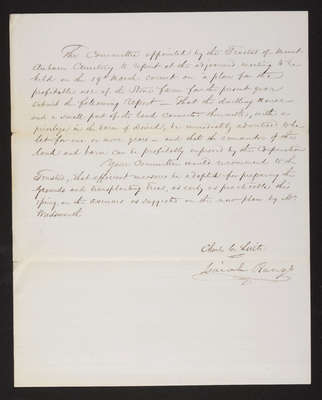 The Committee appointed by the Trustees of Mount
Auburn Cemetery to report at the adjourned meeting to be
held on the 19th March current on a plan for the
profitable use of the Stone Farm for the present year
submit the following Report — That the dwelling House
and a small part of the land connected therewith, with a
privilege in the barn if desired, be immediately advertised to be
let for one or more years — and that the remainder of the
land and barn can be profitably improved by the Corporation
Your Committee would recommend to the
Trustees, that efficient measures be adopted for preparing the
grounds and transplanting trees, as early as practicable this
spring, on the avenues as suggested on the new plan by Mr.
Wadsworth.
Charles C. Little
Isaiah Bangs